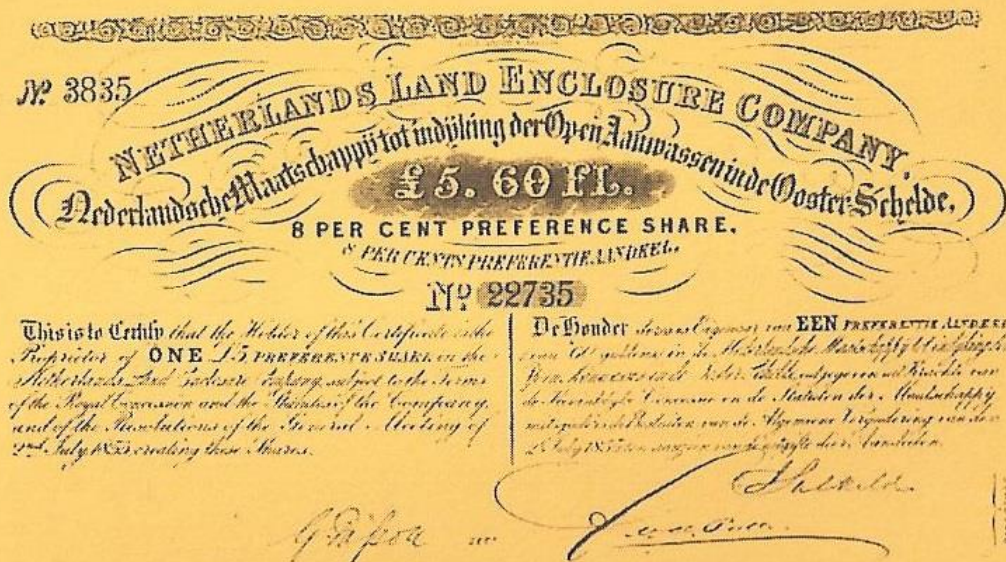 Nº 3835
NETHERLANDS LAND ENCLOSURE COMPANY.
Nederlandsche Maatschappij tot indijking der Open Aanwassen in de Ooster-Schelde.
£5. 60 fl.
8 PER CENT PREFERENCE SHARE.
8 PER CENTS PREFERENTIE AANDEEL.
Nº 22735
This is to Certify that the Holder of this Certificate is the
Proprietor of ONE £5 PREFERENCE SHARE in the
Netherlands Land Enclosure Company, subject to the Terms
of the Royal Concession and the Statutes of the Company,
and of the Resolutions of the General Meeting of
2nd July 1855 creating these Shares.
De Houder dezes is Eigenaar van EEN PREFERENTIE
van 60 guldens in de Nederlandsche Maatschappij tot
in de uitgegeven uit Krachte van
de Concessie en de Statuten der Maatschappij
van de Algemeene Vergadering van den
2 July 1855 der Aandeelen.